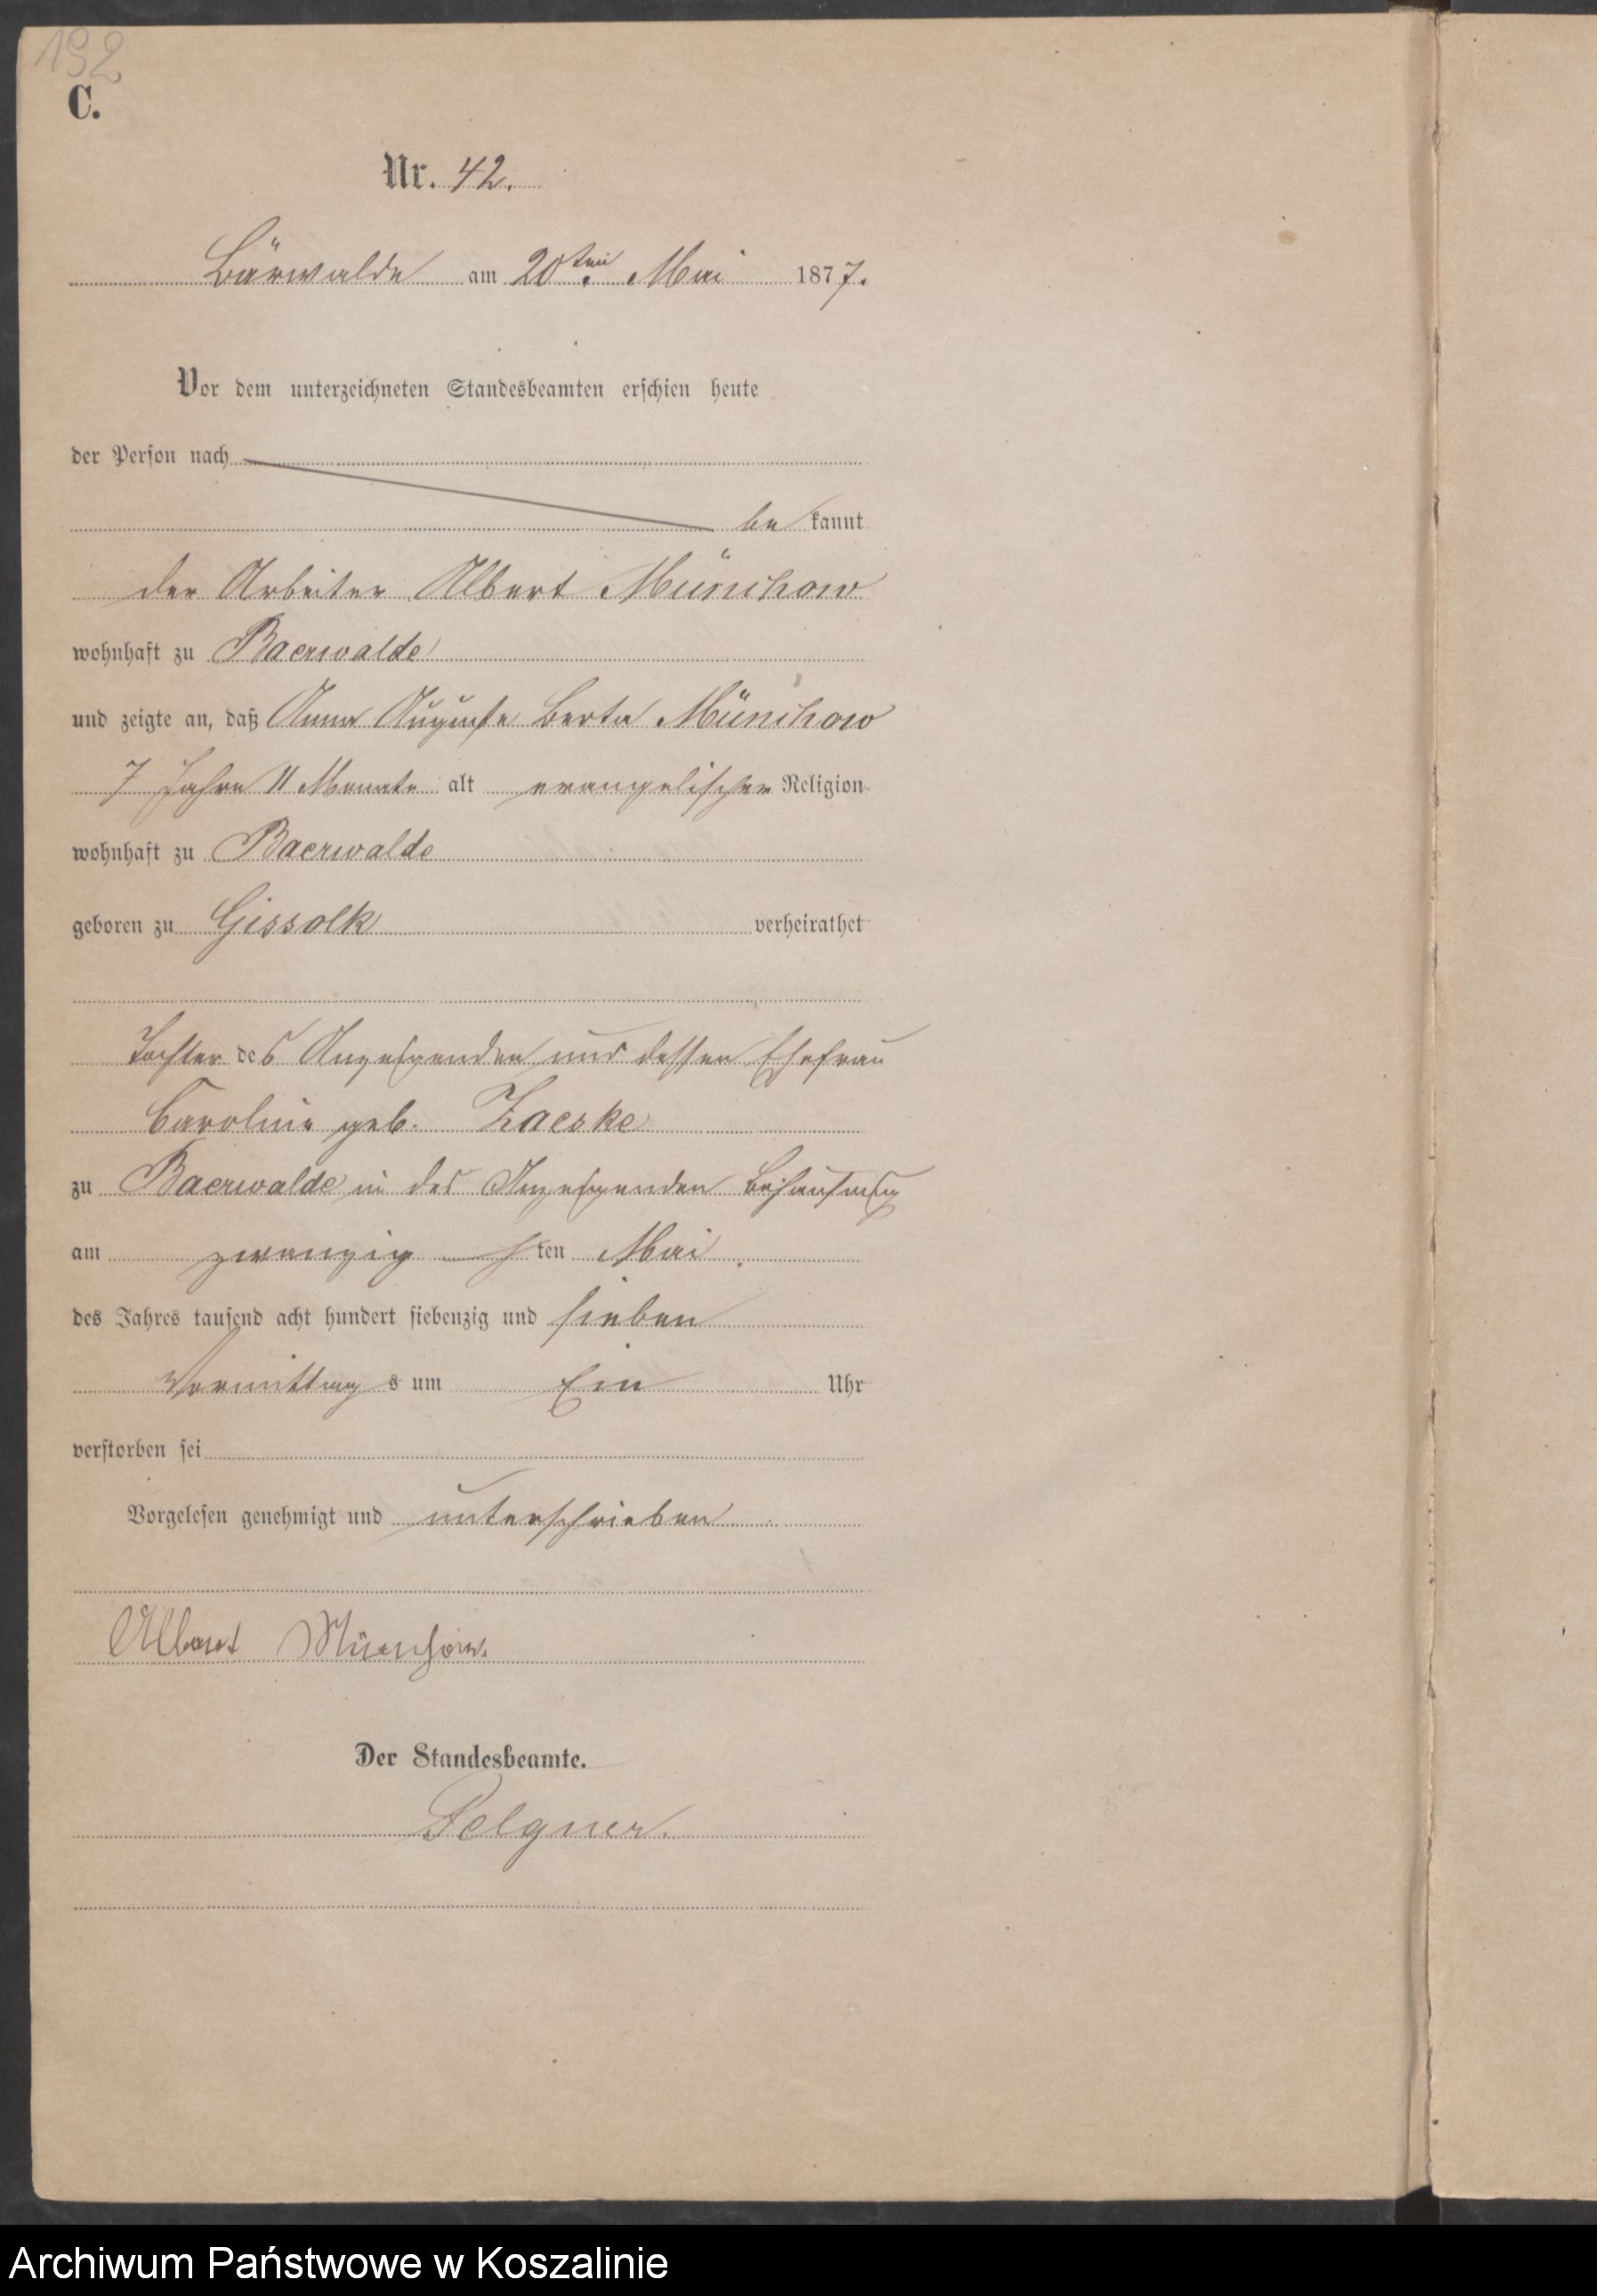 192
C.
Nr. 42.
Bärwalde am 20ten Mai 1877.
Vor dem unterzeichneten Standesbeamten erschien heute
der Person nach
be kannt
der Arbeiter Albert Münchow
wohnhaft zu Baerwalde
und zeigte an, daß Anna Auguste Berta Münchow
7 Jahre 11 Monate alt evangelischer Religion
wohnhaft zu Baerwalde
geboren zu Gissolk verheirathet
Tochter des Anzeigenden und dessen Ehefrau
Caroline geb. Zaeske
zu Baerwalde in des Anzeigenden Behausung
am zwanzig sten Mai
des Jahres tausend acht hundert siebenzig und sieben
Vormittag s um Ein Uhr
verstorben sei
Vorgelesen genehmigt und unterschrieben
Albert Münchow.
Der Standesbeamte.
Felgner.
Archiwum Państwowe w Koszalinie